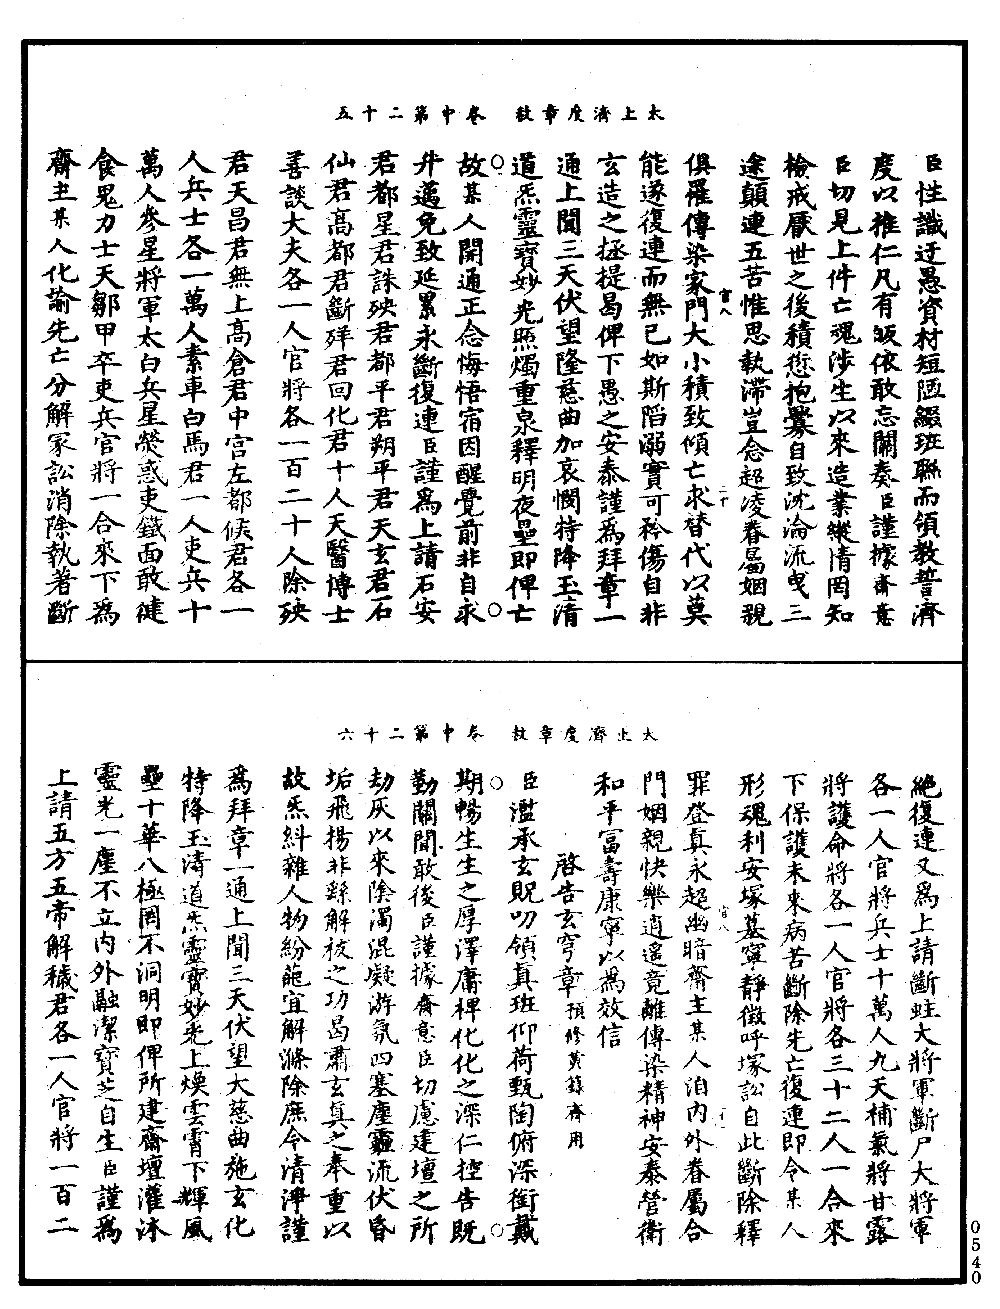 太上濟度章赦　卷中第二十五
臣性識迂愚資材短陋綴班聯而領教誓濟
度以推仁凡有皈依敢忘關奏臣謹據齋意
臣切見上件亡魂涉生以來造業縱情罔知
檢戒厭世之後積愆抱釁自致沈淪流曳三
途顛連五苦惟思執滯豈念超凌眷屬姻親
俱罹傳染家門大小積致傾亡求替代以莫
能遂復連而無已如斯陷溺實可矜傷自非
玄造之拯提曷俾下愚之安泰謹為拜章一
通上聞三天伏望隆慈曲加哀憫特降玉清
道炁靈寶妙光照燭重泉釋明夜壘即俾亡
故某人開通正念悔悟宿因醒覺前非自永
升邁免致延累永斷復連臣謹為上請石安
君都星君誅殃君都平君朔平君天玄君石
仙君高都君斷殃君回化君十人天醫博士
善談大夫各一人官將各一百二十人除殃
君天昌君無上高倉君中宫左都候君各一
人兵士各一萬人素車白馬君一人吏兵十
萬人參星將軍太白兵星熒惑吏鐵面敢健
食鬼力士天鄒甲卒吏兵官將一合來下為
齋主某人化諭先亡分解冢訟消除執著斷
太上濟度章赦　卷中第二十六
絕復連又為上請斷蛀大將軍斷尸大將軍
各一人官將兵士十萬人九天補氣將甘露
將護命將各一人官將各三十二人一合來
下保護未來病苦斷除先亡復連即令某人
形魂利安塚墓寧靜徵呼塚訟自此斷除釋
罪登真永超幽暗齋主某人洎内外眷屬合
門姻親快樂逍遥竟離傳染精神安泰營衛
和平富壽康寧以為效信
啓告玄穹章預修黄籙齋用
臣濫承玄貺叨領真班仰荷甄陶俯深銜戴
期暢生生之厚澤庸稗化化之深仁控告既
勤關聞敢後臣謹據齋意臣切慮建壇之所
劫灰以來陰濁混凝游氛四塞塵霾流伏昏
垢飛揚非繇解祓之功曷肅玄真之奉重以
故炁糾雜人物紛葩宜解滌除庶令清淨謹
為拜章一通上聞三天伏望大慈曲施玄化
特降玉清道炁靈寶妙光上煥雲霄下輝風
壘十華八極罔不洞明即俾所建齋壇灌沐
靈光一塵不立内外融潔寶芝自生臣謹為
上請五方五帝解穢君各一人官將一百二
0540